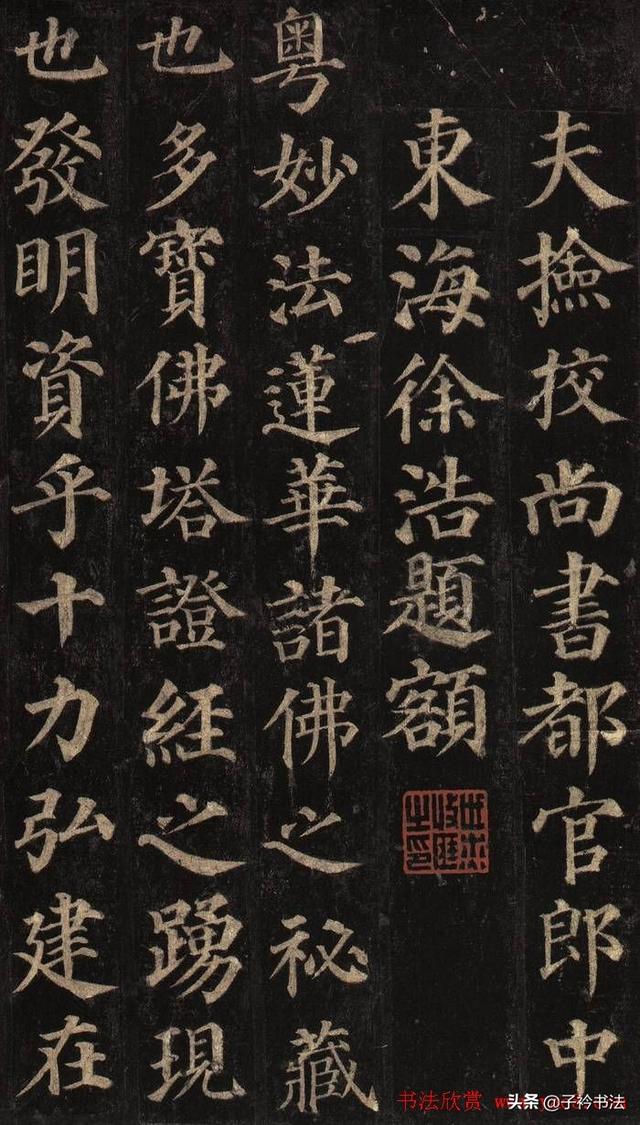 夫撿挍尚書都官郎中
東海徐浩題額
粵妙法蓮華諸佛之祕藏
也多寶佛塔證經之踴現
也發明資乎十力弘建在
书法欣赏
头条 @子衿书法